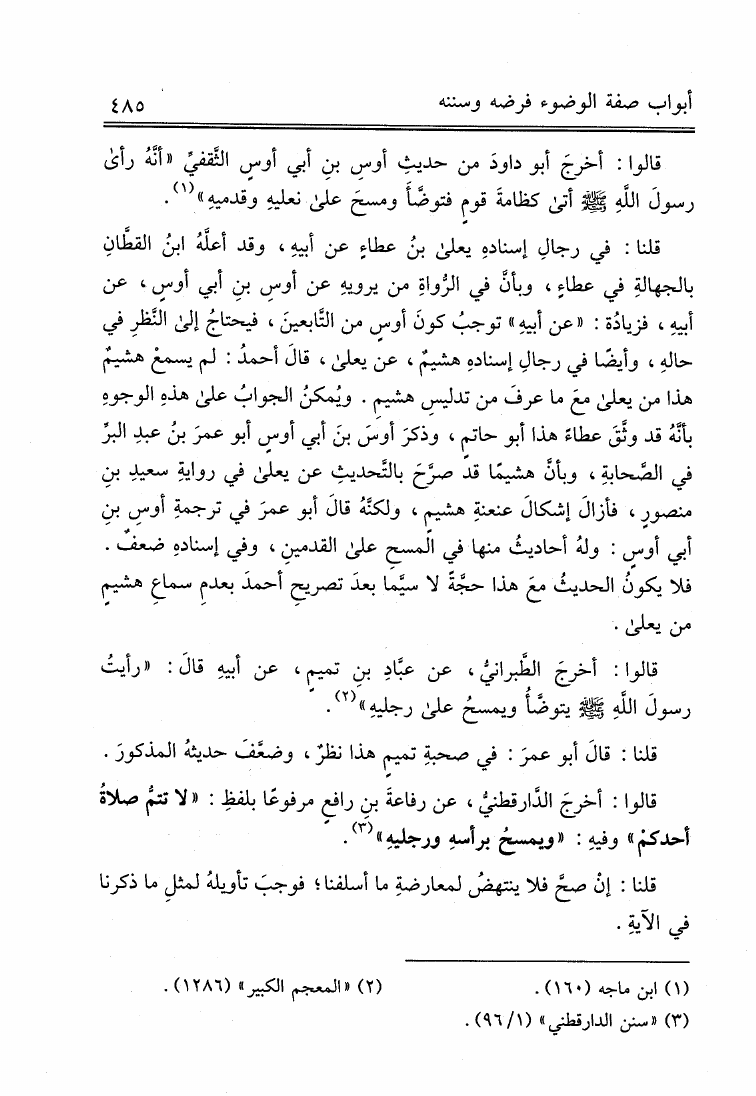 أبواب صفة الوضوء فرضه وسننه ٤٨٥
قالوا : أخرجَ أبو داودَ من حديثِ أوسِ بنِ أبي أوسٍ الثَّقفيِّ «أنَّهُ رأىٰ
رسولَ اللَّهِ ﷺ أتىٰ كظامةَ قومٍ فتوضَّأَ ومسحَ علىٰ نعليهِ وقدميهِ»(١).
قلنا : في رجالِ إسنادهِ يعلىٰ بنُ عطاءٍ عن أبيهِ ، وقد أعلَّهُ ابنُ القطَّانِ
بالجهالةِ في عطاءٍ ، وبأنَّ في الرُّواةِ من يرويهِ عن أوسِ بنِ أبي أوسٍ ، عن
أبيهِ ، فزيادُة : «عن أبيهِ» توجبُ كونَ أوسٍ من التَّابعينَ ، فيحتاجُ إلىٰ النَّظرِ في
حالهِ ، وأيضًا في رجالِ إسنادهِ هشيمٌ ، عن يعلىٰ ، قالَ أحمدُ : لم يسمعْ هشيمٌ
هذا من يعلىٰ معَ ما عرفَ من تدليسِ هشيمٍ . ويُمكنُ الجوابُ علىٰ هذهِ الوجوهِ
بأنَّهُ قد وثَّقَ عطاءً هذا أبو حاتمٍ ، وذكرَ أوسَ بنَ أبي أوسٍ أبو عمرَ بنُ عبدِ البرِّ
في الصَّحابةِ ، وبأنَّ هشيمًا قد صرَّحَ بالتَّحديثِ عن يعلىٰ في روايةِ سعيدِ بنِ
منصورٍ ، فأزالَ إشكالَ عنعنةِ هشيمٍ ، ولكنَّهُ قالَ أبو عمرَ في ترجمةِ أوسِ بنِ
أبي أوسٍ : ولهُ أحاديثُ منها في المسحِ علىٰ القدمينِ ، وفي إسنادهِ ضعفٌ .
فلا يكونُ الحديثُ معَ هذا حجَّةً لا سيَّما بعدَ تصريحِ أحمدَ بعدمِ سماعِ هشيمٍ
من يعلىٰ .
قالوا : أخرجَ الطَّبرانيُّ ، عن عبَّادِ بنِ تميمٍ ، عن أبيهِ قالَ : «رأيتُ
رسولَ اللَّهِ ﷺ يتوضَّأُ ويمسحُ علىٰ رجليهِ»(٢).
قلنا : قالَ أبو عمرَ : في صحبةِ تميمٍ هذا نظرٌ ، وضعَّفَ حديثهُ المذكورَ .
قالوا : أخرجَ الدَّارقطنيُّ ، عن رفاعةَ بنِ رافعٍ مرفوعًا بلفظِ : «لا تتمُّ صلاةُ
أحدكمْ» وفيهِ : «ويمسحُ برأسهِ ورجليهِ»(٣).
قلنا : إنْ صحَّ فلا ينتهضُ لمعارضةِ ما أسلفنا؛ فوجبَ تأويلهُ لمثلِ ما ذكرنا
في الآيةِ .
(١) ابن ماجه (١٦٠). (٢) «المعجم الكبير» (١٢٨٦).
(٣) «سنن الدارقطني» (١/ ٩٦).